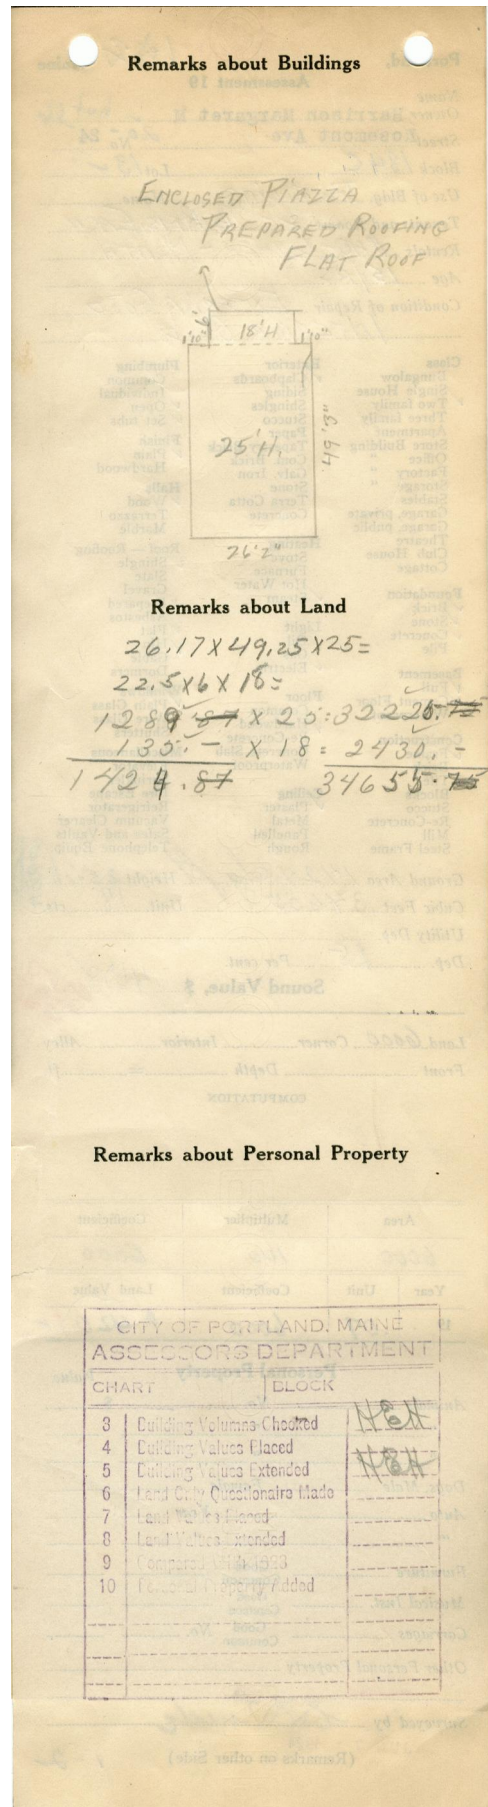 Remarks about Buildings
ENCLOSED PIAZZA
PREPARED ROOFING
FLAT ROOF
6'
1'10" 18'H 1'10"
25'H.
49'3"
26'2"
Remarks about Land
26.17X49.25X25=
22.5X6X18=
1289 87 X 25:32225.75
135.- X 18= 2430.-
1424.87 34655.75
Remarks about Personal Property
CITY OF PORTLAND, MAINE
ASSESSORS DEPARTMENT
CHART BLOCK
3 Building Volumns Checked HEH
4 Building Values Placed
5 Building Values Extended HEH
6 Land Only Questionaire Made
7 Land Values Placed
8 Land Values Extended
9 Compared With 1923
10 Personal Property Added